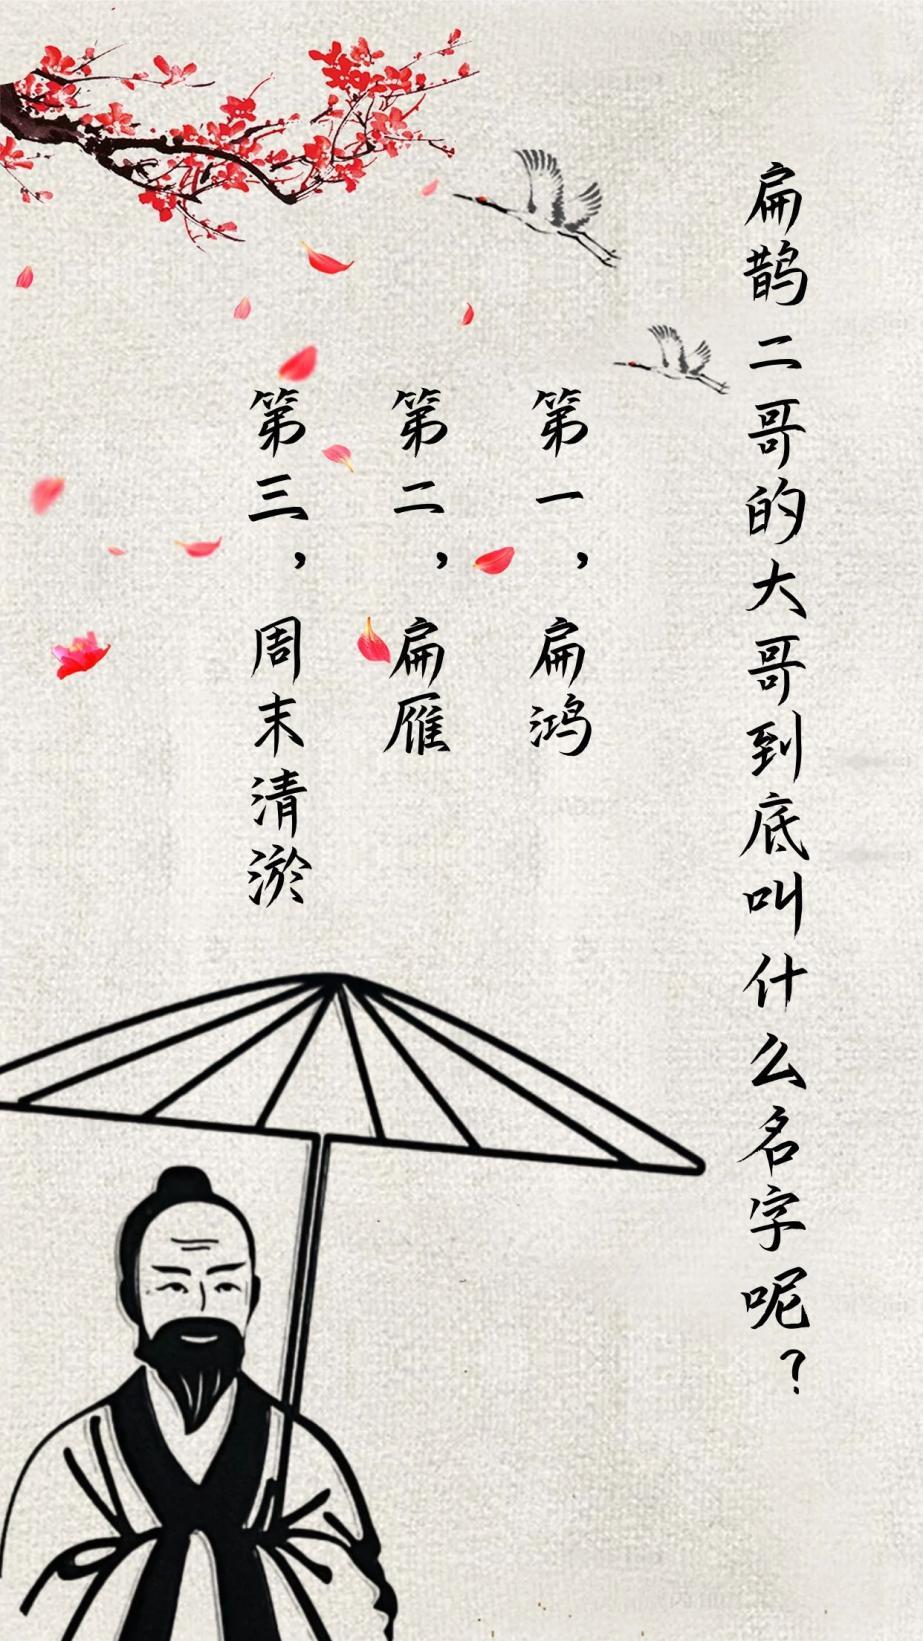 扁鹊二哥的大哥到底叫什么名字呢?
第一,扁鸿
第二,扁雁
第三,周末清淤